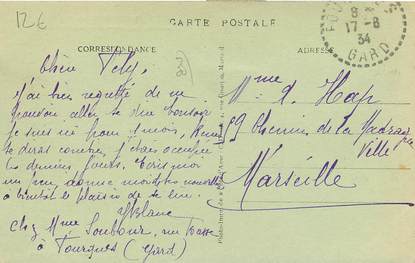 12€
CARTE POSTALE
CORRESPONDANCE
ADRESSE
8
17-8
34
GARD
Chère Fély,
J'ai bien regretté de ne
pouvoir aller te dire bonsoir
je suis ici pour 1 mois,
te diras combien j'étais occupée
les derniers jours. Ecris moi
un peu, donne moi de tes
à bientôt le plaisir de te lire.
YBlanc
chez Mme Soubour, rue Basse
à Fourques (Gard)
Mme A. Hap
59 Chemin de la Madrague
Ville
Marseille